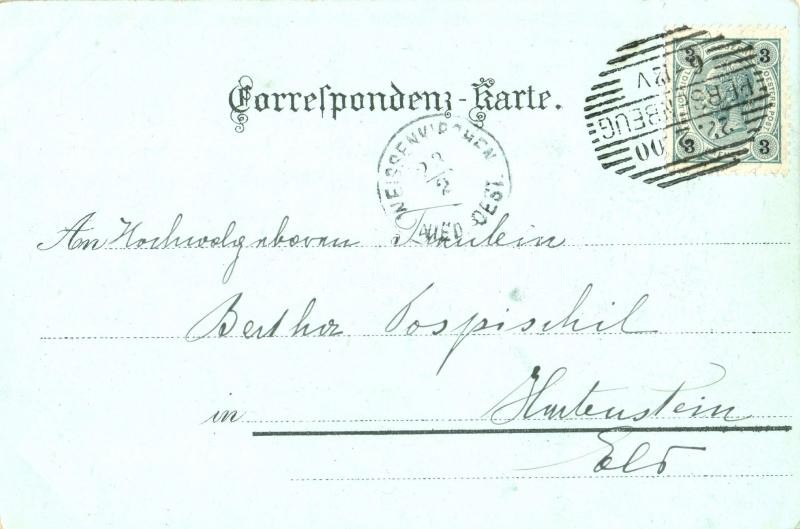 Correspondenz-Karte.
3 3
3 3
OESTERR. POST
PERSENBEUG
WEISSENKIRCHEN
NIED. OEST.
An Hochwolgeboren Fräulein
Bertha Pospischil
in Hartenstein